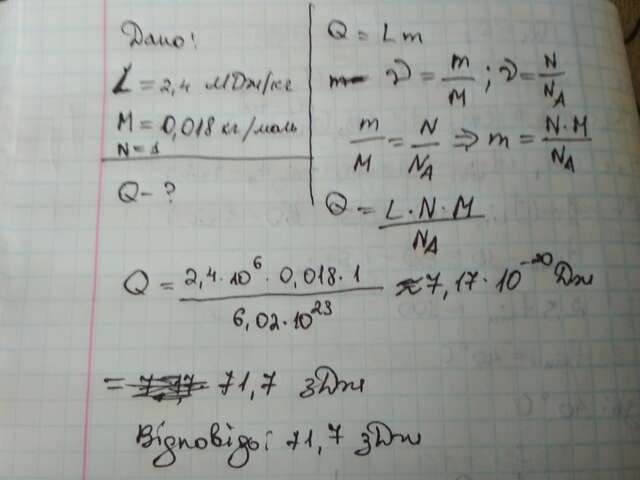 Дано:
L = 2,4 МДж/кг
M = 0,018 кг/моль
N = 1
Q - ?
Q = Lm
ν = m/M ; ν = N/N_A
m/M = N/N_A ⇒ m = N·M/N_A
Q = L·N·M/N_A
Q = 2,4·10⁶·0,018·1/6,02·10²³ ≈ 7,17·10⁻²⁰ Дж
= 71,7 зДж
Відповідь: 71,7 зДж